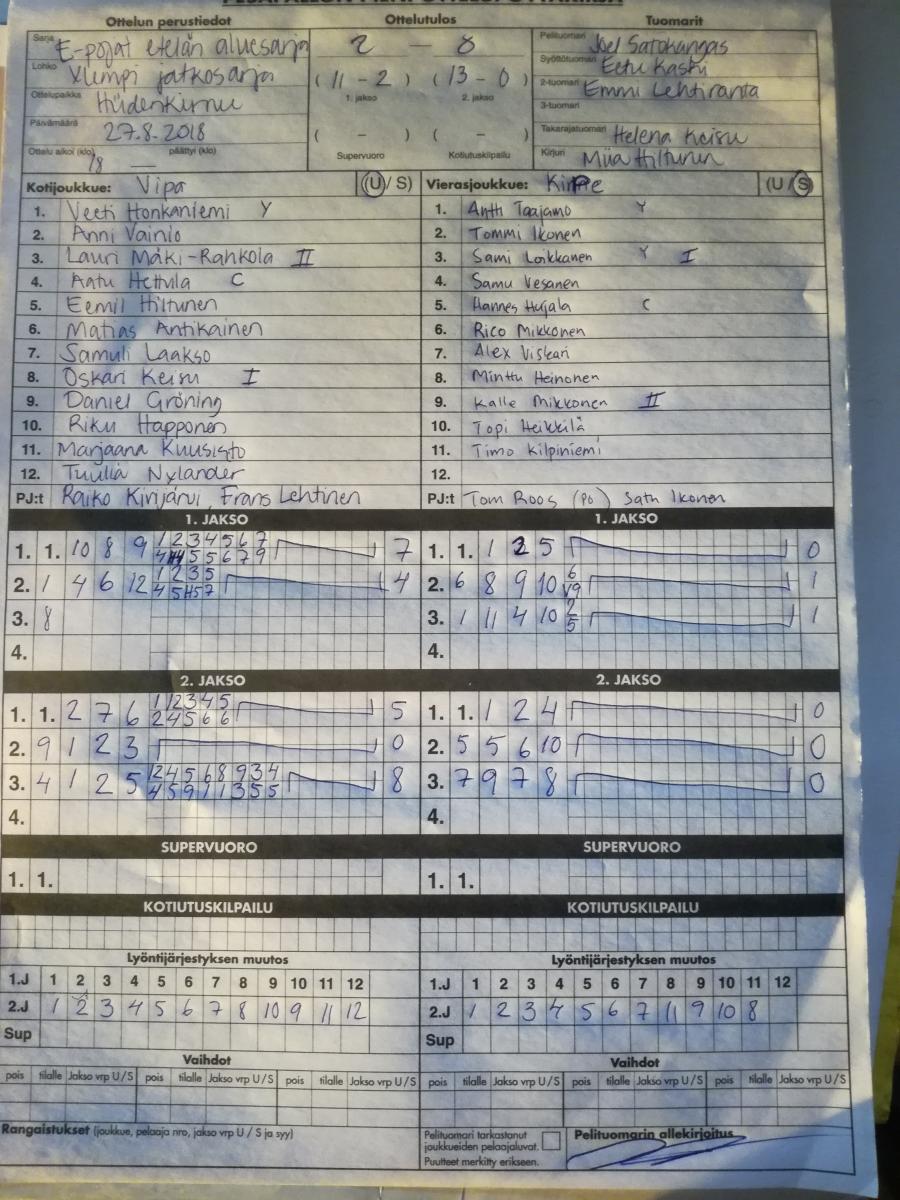 Ottelun perustiedot
Ottelutulos
Tuomarit
Sarja E-pojat etelän aluesarja
Lohko Ylempi jatkosarja
Ottelupaikka Hiidenkirnu
Päivämäärä 27.8.2018
Ottelu alkoi (klo) 18 — päättyi (klo)
2 — 0
( 11 - 2 ) ( 13 - 0 )
1. jakso 2. jakso
( - ) ( - )
Supervuoro Kotiutuskilpailu
Pelituomari Joel Satokangas
Syöttötuomari Eetu Kaski
2-tuomari Emmi Lehtiranta
3-tuomari
Takarajatuomari Helena Keisu
Kirjuri Miia Hiltunen
Kotijoukkue: Vipa (U / S)
1. Veeti Honkaniemi Y
2. Anni Vainio
3. Lauri Mäki-Rahkola II
4. Aatu Hettula C
5. Eemil Hiltunen
6. Matias Antikainen
7. Samuli Laakso
8. Oskari Keisu I
9. Daniel Gröning
10. Riku Happonen
11. Marjaana Kuusisto
12. Tuulia Nylander
PJ:t Raiko Kirijärvi, Frans Lehtinen
Vierasjoukkue: KiPe (U / S)
1. Antti Taajamo Y
2. Tommi Ikonen
3. Sami Loikkanen Y I
4. Samu Vesanen
5. Hannes Hujala C
6. Rico Mikkonen
7. Alex Viskari
8. Minttu Heinonen
9. Kalle Mikkonen II
10. Topi Heikkilä
11. Timo Kilpiniemi
12.
PJ:t Tom Roos (PO) Satu Ikonen
1. JAKSO
1. 1. 10 8 9 1 2 3 4 5 6 7
5 5 6 7 9
7
2. 1 4 6 12 1 2 3 5
4
3. 8
4.
1. JAKSO
1. 1. 1 2 5 0
2. 6 8 9 10 6
1
3. 1 11 4 10 2
5
1
4.
2. JAKSO
1. 1. 2 7 6 1 12 3 4 5
2 4 5 6 6
5
2. 9 1 2 3 0
3. 4 1 2 5 12 4 5 6 8 9 3 4
4 5 9 1 1 3 5 5
8
4.
2. JAKSO
1. 1. 1 2 4 0
2. 5 5 6 10 0
3. 7 9 7 8 0
4.
SUPERVUORO
1. 1.
SUPERVUORO
1. 1.
KOTIUTUSKILPAILU
KOTIUTUSKILPAILU
Lyöntijärjestyksen muutos
1.J 1 2 3 4 5 6 7 8 9 10 11 12
2.J 1 2 3 4 5 6 7 8 10 9 11 12
Sup
Lyöntijärjestyksen muutos
1.J 1 2 3 4 5 6 7 8 9 10 11 12
2.J 1 2 3 4 5 6 7 11 9 10 8
Sup
Vaihdot
pois tilalle Jakso vrp U/S pois tilalle Jakso vrp U/S pois tilalle Jakso vrp U/S
Vaihdot
pois tilalle Jakso vrp U/S pois tilalle Jakso vrp U/S pois tilalle Jakso vrp U/S
Rangaistukset (joukkue, pelaaja nro, jakso vrp U / S ja syy)
Pelituomari tarkastanut
joukkueiden pelaajaluvat.
Puutteet merkitty erikseen.
Pelituomarin allekirjoitus